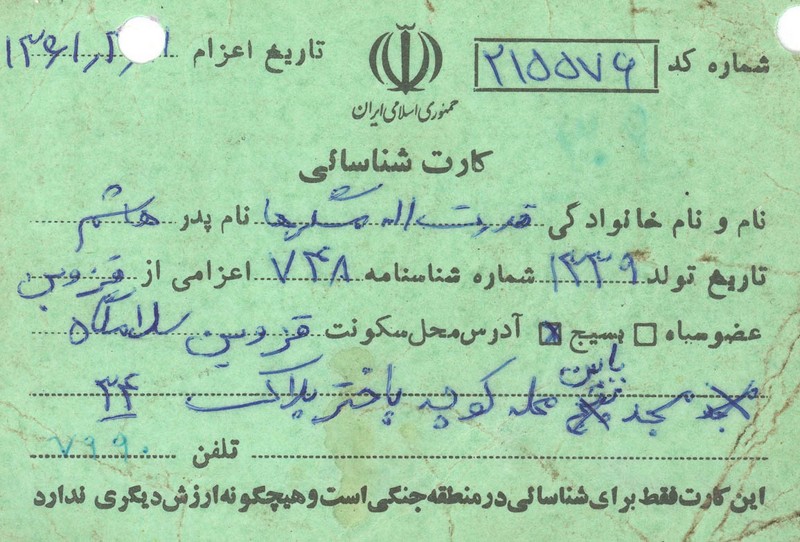 شماره کد ۲۱۵۵۷۶ تاریخ اعزام ۱۳۶۱
جمهوری اسلامی ایران
کارت شناسائی
نام و نام خانوادگی قدرت اله نام پدر هاشم
تاریخ تولد ۱۳۳۹ شماره شناسنامه ۷۴۸ اعزامی از قزوین
عضو سپاه بسیج آدرس محل سکونت قزوین سلامگاه
پایین
مسجد محله کوچه باختر پلاک ۳۴
تلفن ۷۹۹۰
این کارت فقط برای شناسائی در منطقه جنگی است و هیچگونه ارزش دیگری ندارد